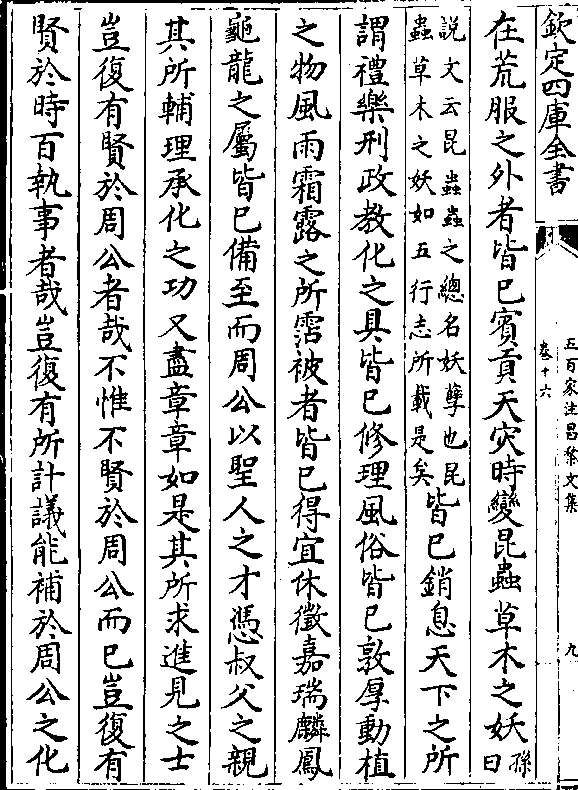 欽定四庫全書
五百家注昌黎文集
卷十六
九
在荒服之外者皆已賓貢天灾時變昆蟲草木之妖孫曰
説文云昆蟲蟲之總名妖孽也昆
蟲草木之妖如五行志所載是矣
皆已銷息天下之所
謂禮樂刑政教化之具皆已修理風俗皆已敦厚動植
之物風雨霜露之所霑被者皆已得宜休徵嘉瑞麟鳳
龜龍之屬皆已備至而周公以聖人之才憑叔父之親
其所輔理承化之功又盡章章如是其所求進見之士
豈復有賢於周公者哉不惟不賢於周公而已豈復有
賢於時百執事者哉豈復有所計議能補於周公之化